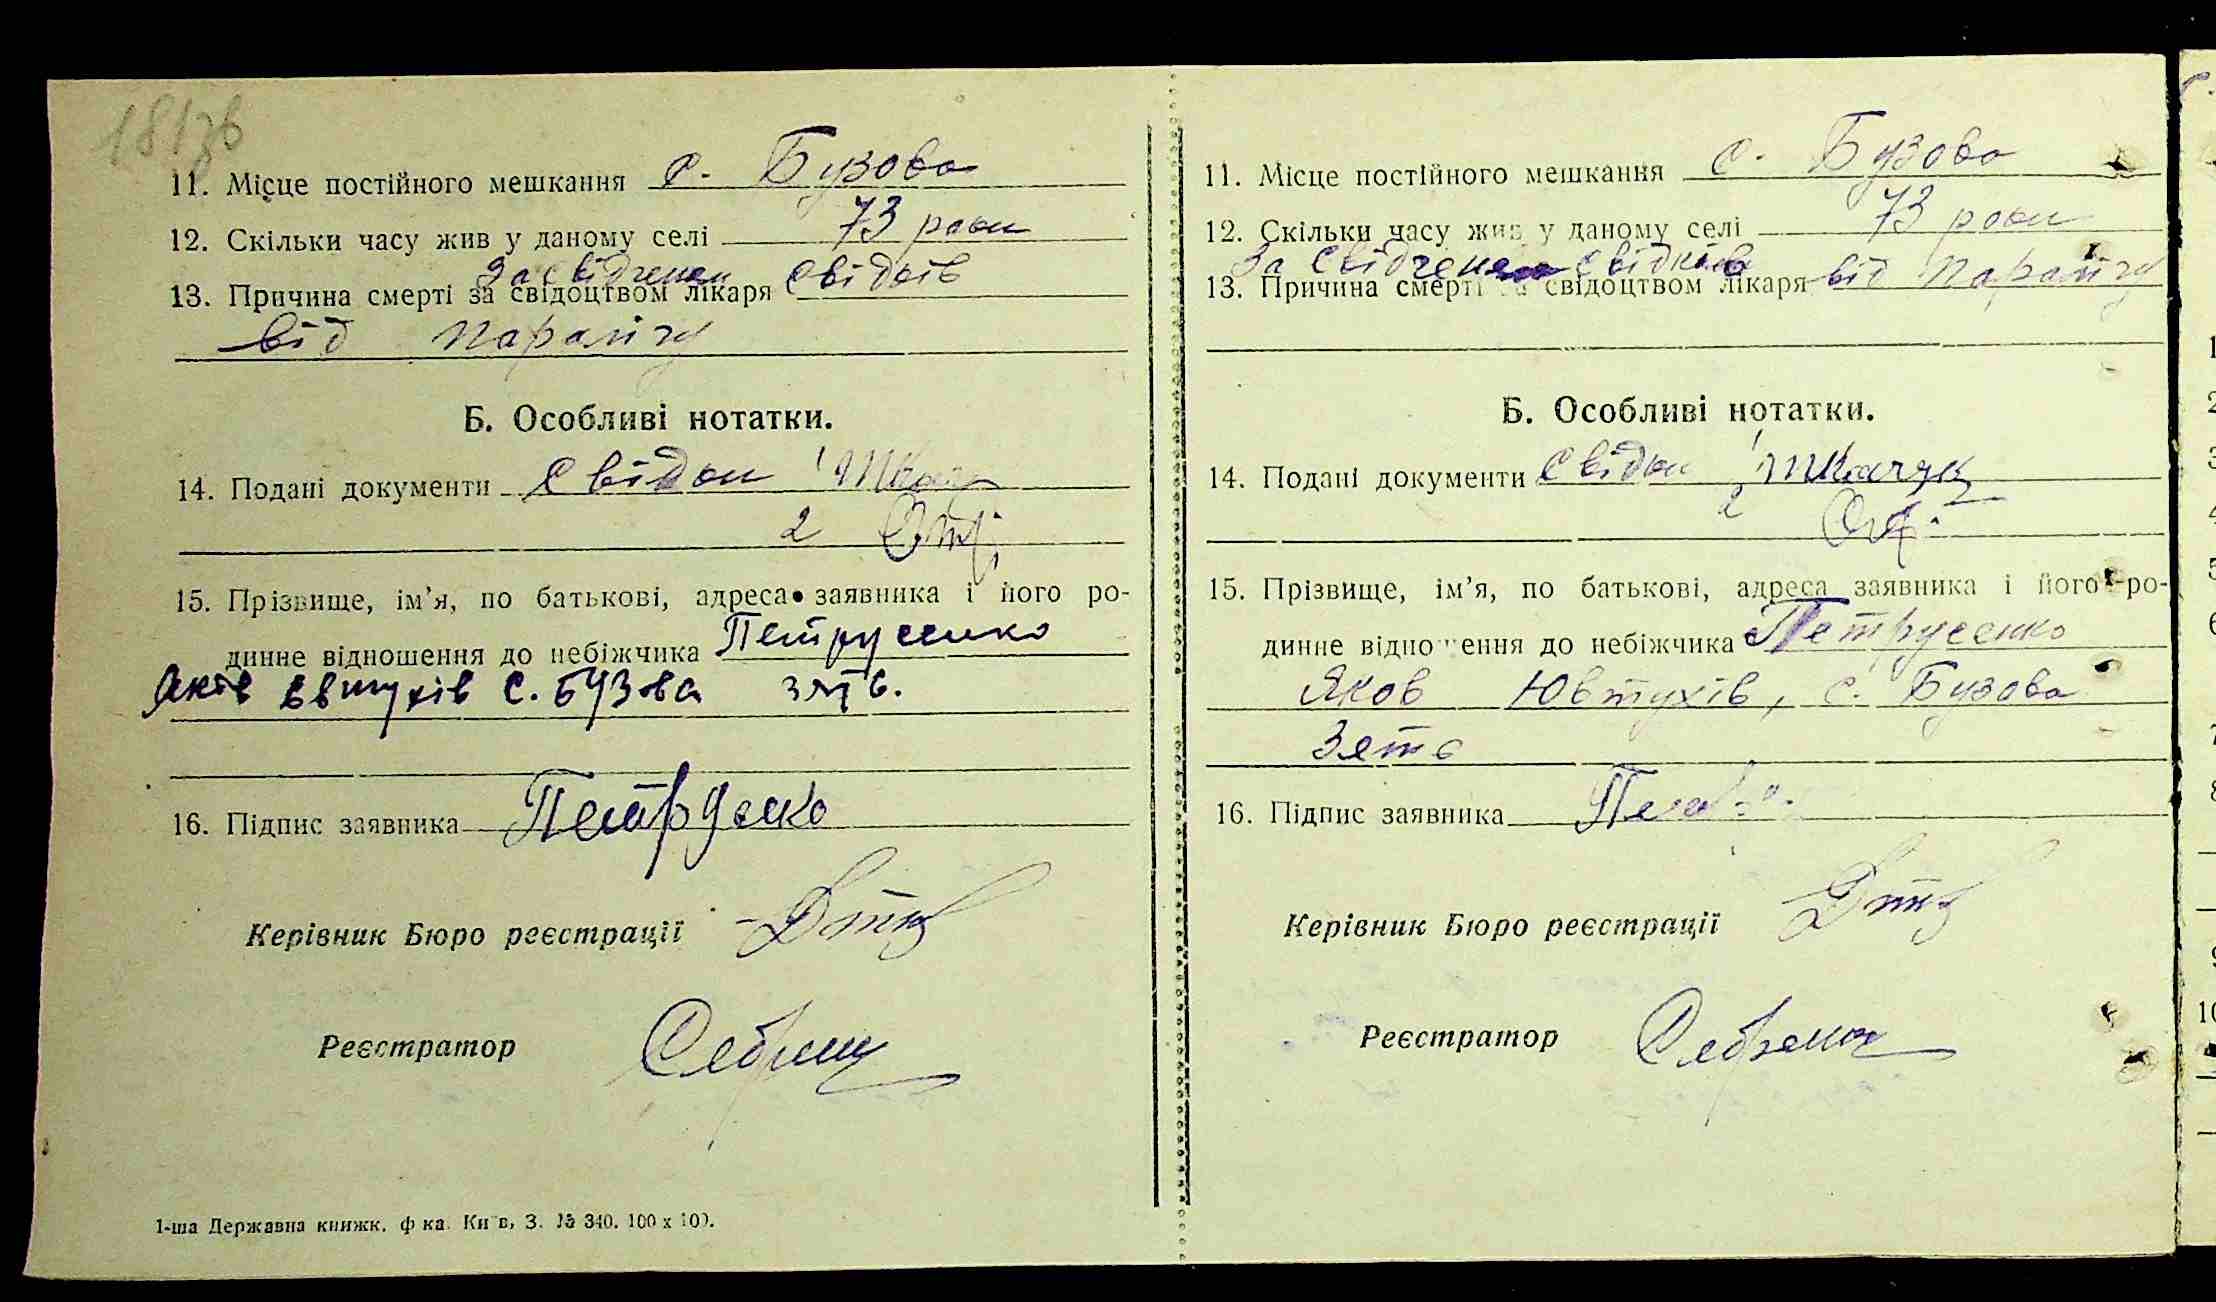 11. Місце постійного мешкання с. Бузова
12. Скільки часу жив у даному селі 73 роки
За свідченєм свідків
13. Причина смерті за свідоцтвом лікаря
від паралічу
Б. Особливі нотатки.
14. Подані документи Свідки 1
2
15. Прізвище, ім'я, по батькові, адреса заявника і його ро-
динне відношення до небіжчика Петрусенко
Яків Євтухів с. Бузова зять.
16. Підпис заявника Петрусенко
Керівник Бюро реєстрації
Реєстратор
1-ша Державна книжк. ф-ка. Київ, З. № 340. 100 х 100.
11. Місце постійного мешкання с. Бузова
12. Скільки часу жив у даному селі 73 роки
За свідченєм свідків
13. Причина смерті за свідоцтвом лікаря від паралічу
Б. Особливі нотатки.
14. Подані документи Свідки 1 Ткачук
2
15. Прізвище, ім'я, по батькові, адреса заявника і його ро-
динне відношення до небіжчика Петрусенко
Яков Ювтухів, с. Бузова
Зять
16. Підпис заявника
Керівник Бюро реєстрації
Реєстратор